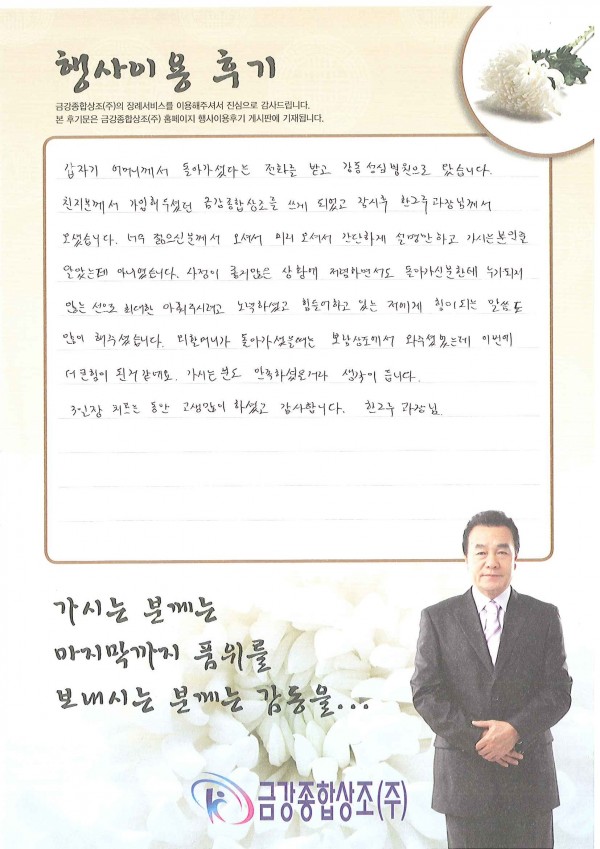 행사이용 후기
금강종합상조(주)의 장례서비스를 이용해주셔서 진심으로 감사드립니다.
본 후기문은 금강종합상조(주) 홈페이지 행사이용후기 게시판에 기재됩니다.
갑자기 어머니께서 돌아가셨다는 전화를 받고 강동성심병원으로 갔습니다.
친지분께서 가입해두셨던 금강종합상조를 쓰게 되었고 잠시후 한그루과장님께서
오셨습니다. 너무 젊으신분께서 오셔서 미리 오셔서 간단하게 설명만 하고 가시는분인줄
알았는데 아니였습니다. 사정이 좋지않은 상황에 저렴하면서도 돌아가신분한테 누가되지
않는 선으로 최대한 맞춰주시려고 노력하셨고 힘들어하고 있는 저에게 힘이되는 말씀도
많이 해주셨습니다. 외할머니가 돌아가셨을때는 보람상조에서 와주셨었는데 이번에
더 큰힘이 된거 같네요. 가시는 분도 만족하셨을거라 생각이 듭니다.
3일장 치르는 동안 고생많이 하셨고 감사합니다. 한그루 과장님
가시는 분께는
마지막까지 품위를
보내시는 분께는 감동을...
금강종합상조(주)